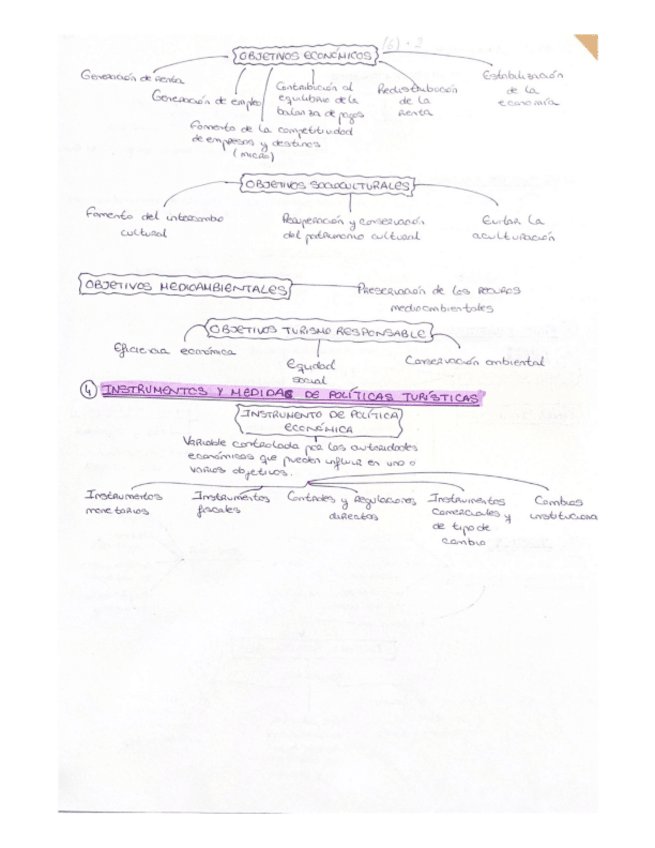 OBJETIVOS ECONÓMICOS
Generación de renta
Generación de empleo
Fomento de la competitividad
de empresas y destinos
(micro)
Contribución al
equilibrio de la
balanza de pagos
Redistribución
de la
renta
Estabilización
de la
economía
OBJETIVOS SOCIOCULTURALES
Fomento del intercambio
cultural
Recuperación y conservación
del patrimonio cultural
Evitar la
aculturación
OBJETIVOS MEDIOAMBIENTALES
Preservación de los recursos
medioambientales
OBJETIVOS TURISMO RESPONSABLE
Eficiencia económica
Equidad
social
Conservación ambiental
4 INSTRUMENTOS Y MEDIDAS DE POLÍTICAS TURÍSTICAS
INSTRUMENTO DE POLÍTICA
ECONÓMICA
Variable controlada por las autoridades
económicas que pueden influir en uno o
varios objetivos.
Instrumentos
monetarios
Instrumentos
fiscales
Controles y regulaciones
directos
Instrumentos
comerciales y
de tipo de
cambio
Cambios
instituciona